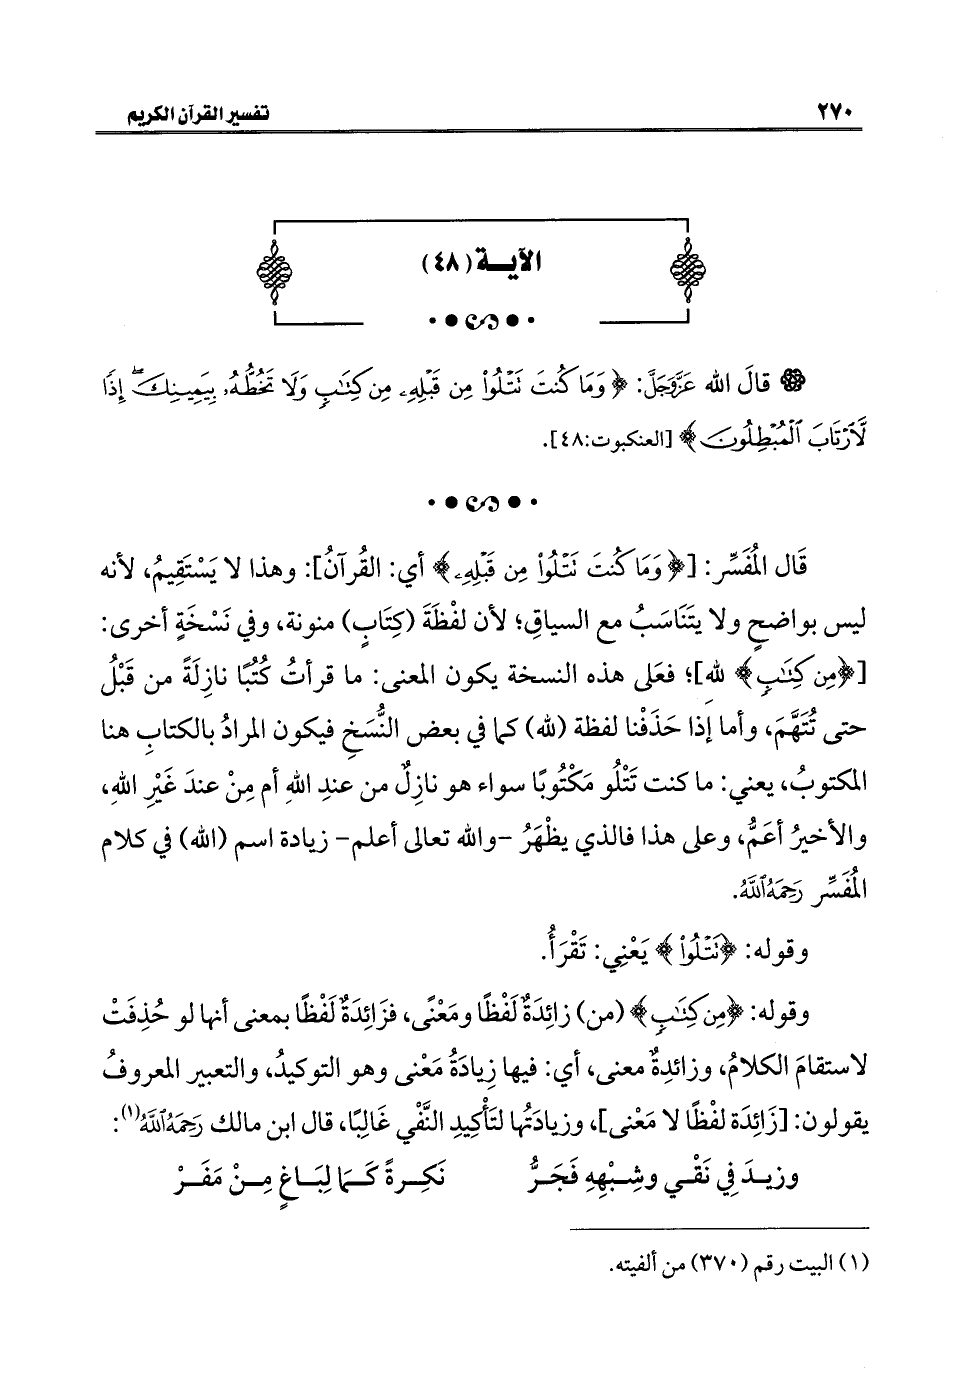 ٢٧٠ تفسير القرآن الكريم
الآيــة (٤٨)
قالَ الله عَزَّوَجَلَّ: ﴿وَمَا كُنتَ نَتْلُواْ مِن قَبْلِهِۦ مِن كِتَٰبٍ وَلَا تَخُطُّهُۥ بِيَمِينِكَ ۖ إِذًا
لَّارْتَابَ الْمُبْطِلُونَ﴾ [العنكبوت:٤٨].
قَال المُفَسِّر: [﴿وَمَا كُنتَ نَتْلُواْ مِن قَبْلِهِۦ﴾ أي: القُرآنُ]: وهذا لا يَسْتَقِيمُ، لأنه
ليس بواضحٍ ولا يتَنَاسَبُ مع السياقِ؛ لأن لفْظَةَ (كِتَابٍ) منونة، وفي نَسْخَةٍ أخرى:
[﴿مِن كِتَٰبٍ﴾ للهِ]؛ فعَلى هذه النسخة يكون المعنى: ما قرأتُ كُتُبًا نازِلَةً من قَبْلُ
حتى تُتَهَّمَ، وأما إذا حَذَفْنا لفظة (لله) كما في بعض النُّسَخِ فيكون المرادُ بالكتابِ هنا
المكتوبُ، يعني: ما كنت تَتْلُو مَكْتُوبًا سواء هو نازِلٌ من عندِ اللهِ أم مِنْ عندَ غَيْرِ اللهِ،
والأخيرُ أعَمُّ، وعلى هذا فالذي يظْهَرُ -والله تعالى أعلم- زيادة اسم (الله) في كلام
المُفَسِّر رَحِمَهُ ٱللَّهُ.
وقوله: ﴿نَتْلُواْ﴾ يَعْنِي: تَقْرَأُ.
وقوله: ﴿مِن كِتَٰبٍ﴾ (من) زائِدَةٌ لَفْظًا ومَعْنًى، فزَائِدَةٌ لَفظًا بمعنى أنها لو حُذِفَتْ
لاستقامَ الكلامُ، وزائدِةٌ معنى، أي: فيها زِيادَةُ مَعْنى وهو التوكيدُ، والتعبير المعروفُ
يقولون: [زَائِدَة لفْظًا لا مَعْنى]، وزيادَتُها لتَأْكِيدِ النَّفْي غَالِبًا، قال ابن مالك رَحِمَهُ ٱللَّهُ(١):
وزيـدَ فِي نَفْـي وشِـبْهِهِ فَجَـرُّ نَكِـرةً كَـمَا لِبَـاغٍ مِـنْ مَفَـرْ
(١) البيت رقم (٣٧٠) من ألفيته.